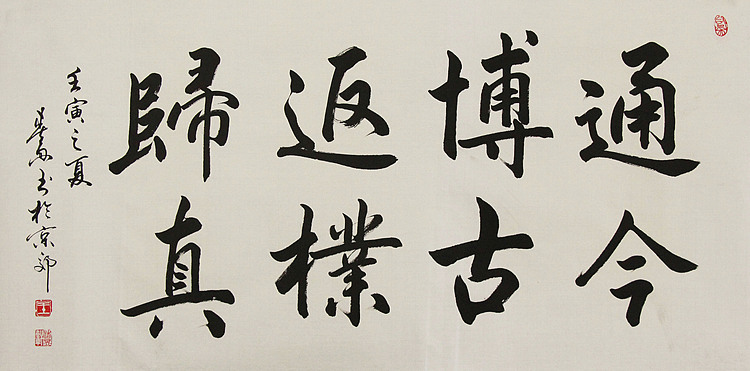 通今
博古
返樸
歸真
壬寅之夏
書於京郊